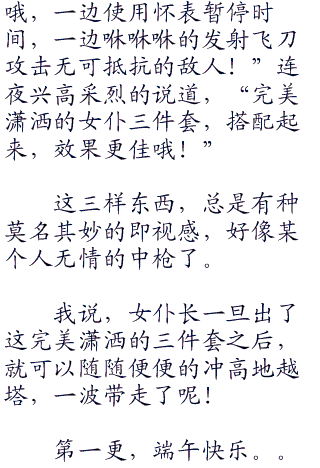 哦，一边使用怀表暂停时
间，一边咻咻咻的发射飞刀
攻击无可抵抗的敌人！”连
夜兴高采烈的说道，“完美
潇洒的女仆三件套，搭配起
来，效果更佳哦！”
这三样东西，总是有种
莫名其妙的即视感，好像某
个人无情的中枪了。
我说，女仆长一旦出了
这完美潇洒的三件套之后，
就可以随随便便的冲高地越
塔，一波带走了呢！
第一更，端午快乐。。